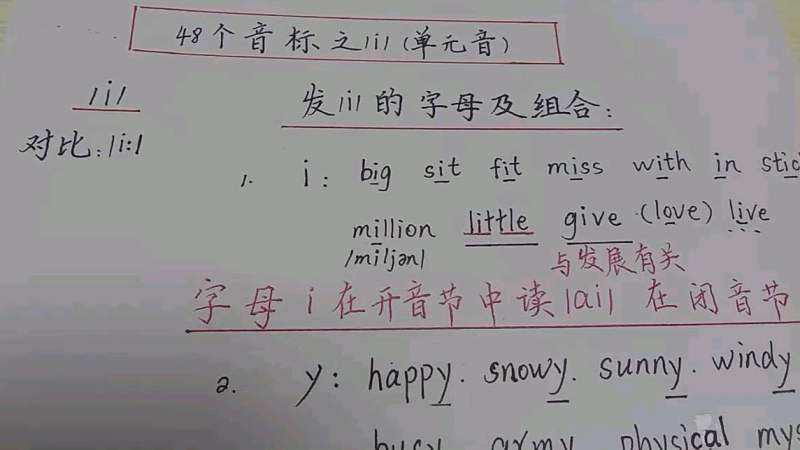 48个音标之/i/(单元音)
/i/
发/i/的字母及组合:
对比:/i:/
1. i: big sit fit miss with in stic
million little give·(love) live
/miljən/ 与发展有关
字母i在开音节中读/ai/ 在闭音节
2. y: happy. snowy. sunny. windy
busy army physical mys